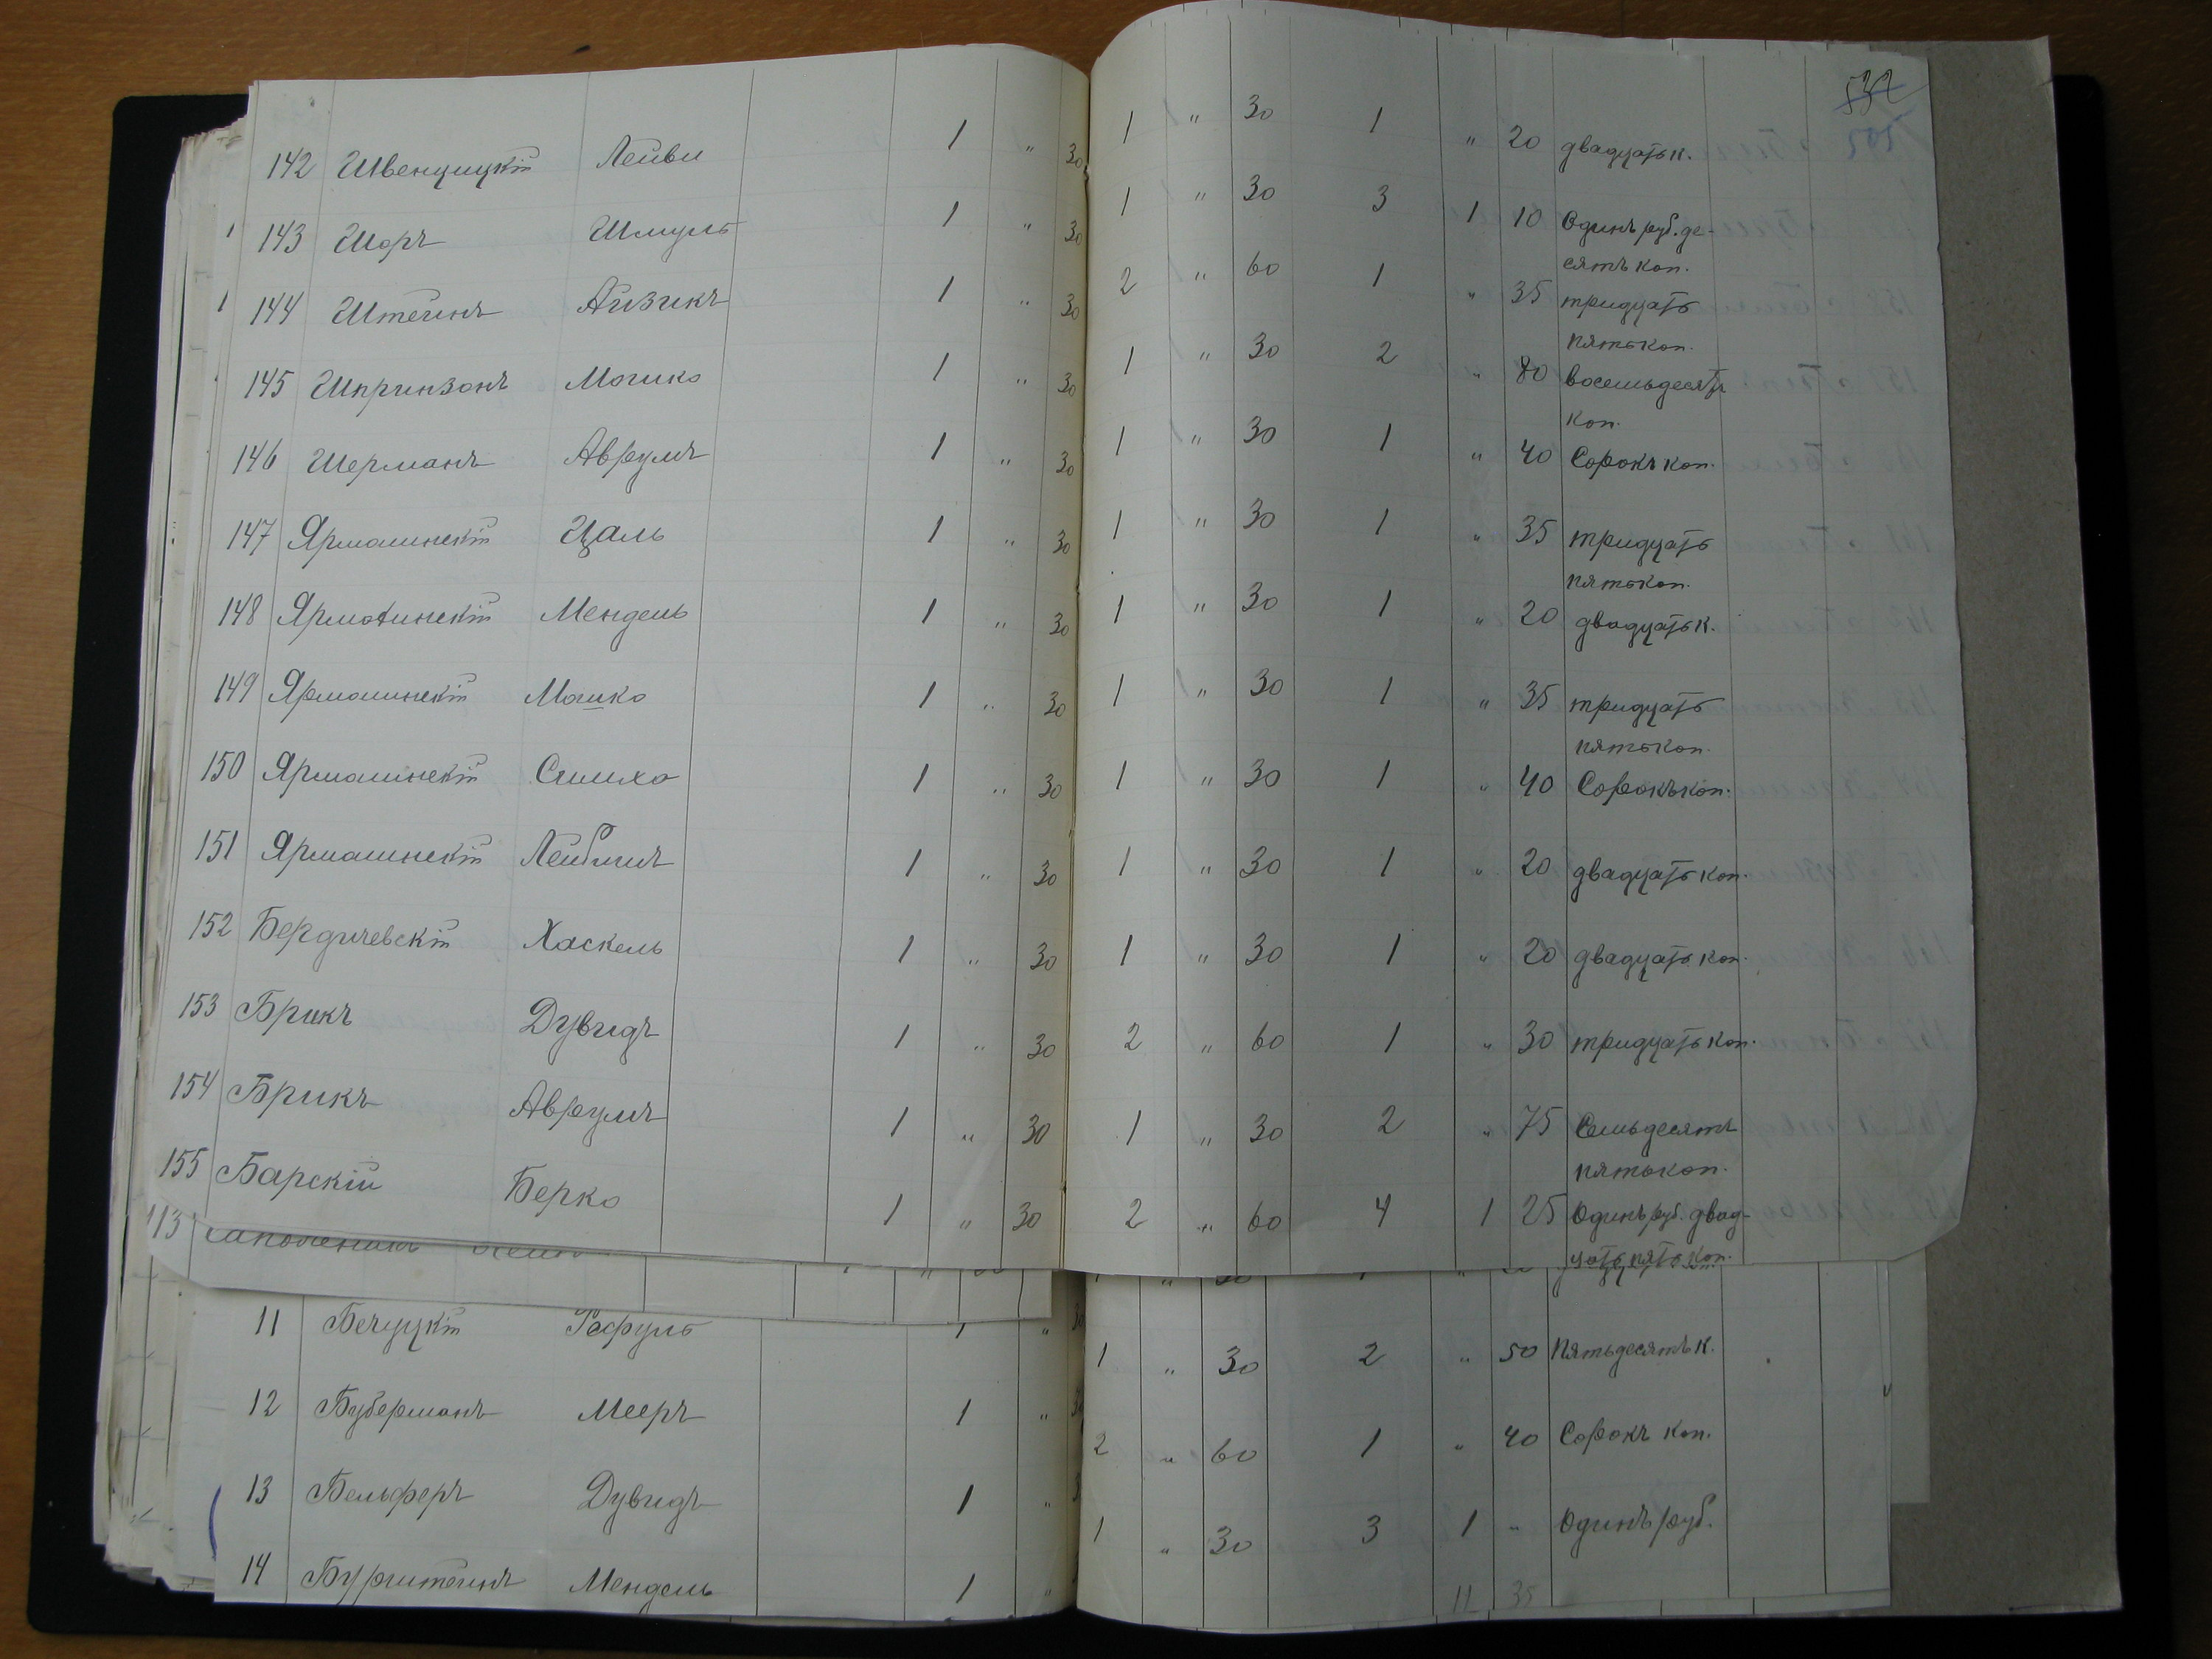 532
505
142 Швенцицкій Лейви 1 " 30 1 " 30 1 " 20 двадцать к.
143 Шоръ Шмуль 1 " 30 1 " 30 3 1 10 Одинъ руб. де-
сять коп.
144 Штейнъ Айзикъ 1 " 30 2 " 60 1 " 35 тридцать
пять коп.
145 Шпринзонъ Мошко 1 " 30 1 " 30 2 " 80 восемьдесятъ
коп.
146 Шерманъ Аврумъ 1 " 30 1 " 30 1 " 40 Сорокъ коп.
147 Ярмолинскій Цаль 1 " 30 1 " 30 1 " 35 тридцать
пять коп.
148 Ярмолинскій Мендель 1 " 30 1 " 30 1 " 20 двадцать к.
149 Ярмолинскій Мошко 1 " 30 1 " 30 1 " 35 тридцать
пять коп.
150 Ярмолинскій Симха 1 " 30 1 " 30 1 " 40 Сорокъ коп.
151 Ярмолинскій Лейбишъ 1 " 30 1 " 30 1 " 20 двадцать коп.
152 Бердичевскій Хаскель 1 " 30 1 " 30 1 " 20 двадцать коп.
153 Брикъ Дувидъ 1 " 30 2 " 60 1 " 30 тридцать коп.
154 Брикъ Аврумъ 1 " 30 1 " 30 2 " 75 Семьдесятъ
пять коп.
155 Барскій Берко 1 " 30 2 " 60 4 1 25 Одинъ руб. двад-
цать пять коп.
113
11 Рафуль 1 " 30 1 " 30 2 " 50 Пятьдесятъ к.
12 Буберманъ Мееръ 1 " 2 " 60 1 " 40 Сорокъ коп.
13 Бельферъ Дувидъ 1 " 1 " 30 3 1 " Одинъ руб.
14 Бурштейнъ Мендель 1 "
11 35